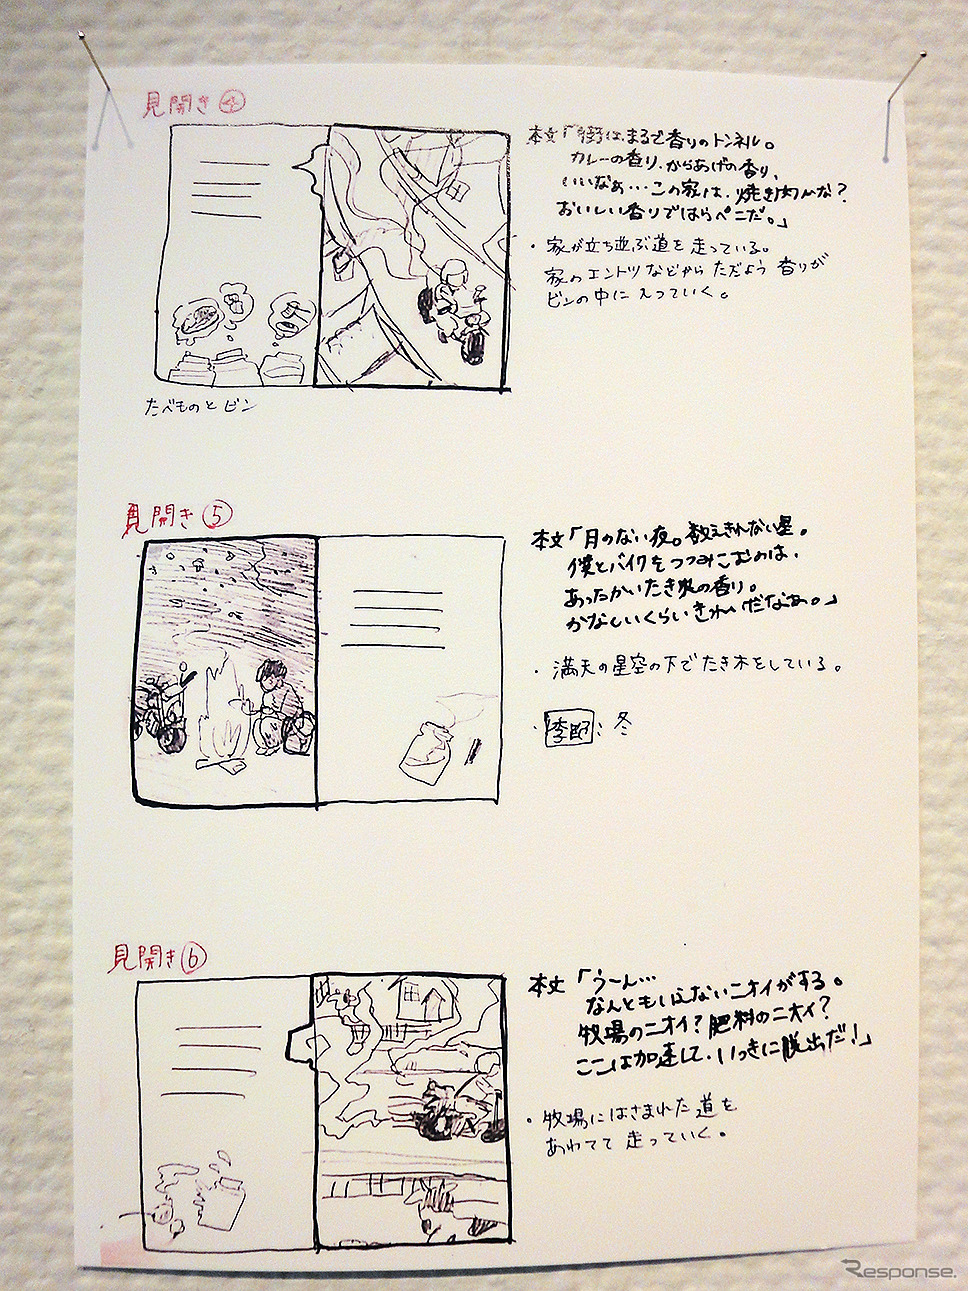 見開き④
本文「街は、まるで香りのトンネル。
カレーの香り、からあげの香り、
いいなぁ…この家は、焼き肉かな？
おいしい香りではらペこだ。」
・家が立ち並ぶ道を走っている。
家のエントツなどから ただよう 香りが
ビンの中に入っていく。
たべものとビン
見開き⑤
本文「月のない夜。数えきれない星。
僕とバイクをつつみこむのは、
あったかいたき火の香り。
かなしいくらいきれいだなあ。」
・満天の星空の下でたき木をしている。
・季節：冬
見開き⑥
本文「う～ん…
なんともいえないニオイがする。
牧場のニオイ？肥料のニオイ？
ここは加速して、いっきに脱出だ！」
・牧場にはさまれた道を
あわてて走っていく。
Response.